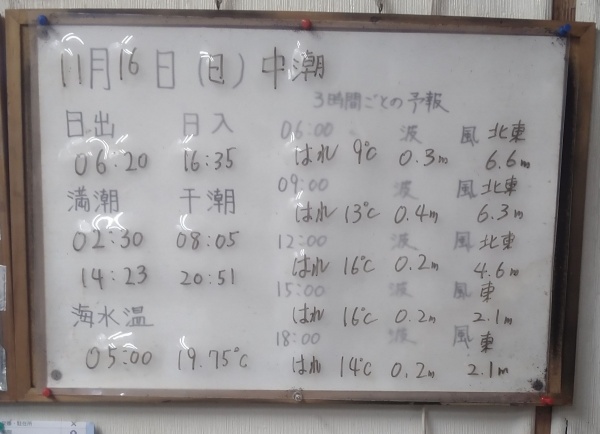 11月16日(日)中潮
3時間ごとの予報
日出 日入
06:20 16:35
満潮 干潮
02:30 08:05
14:23 20:51
海水温
05:00 19.75℃
06:00 波 風 北東
はれ 9℃ 0.3m 6.6m
09:00 波 風 北東
はれ 13℃ 0.4m 6.3m
12:00 波 風 北東
はれ 16℃ 0.2m 4.6m
15:00 波 風 東
はれ 16℃ 0.2m 2.1m
18:00 波 風 東
はれ 14℃ 0.2m 2.1m